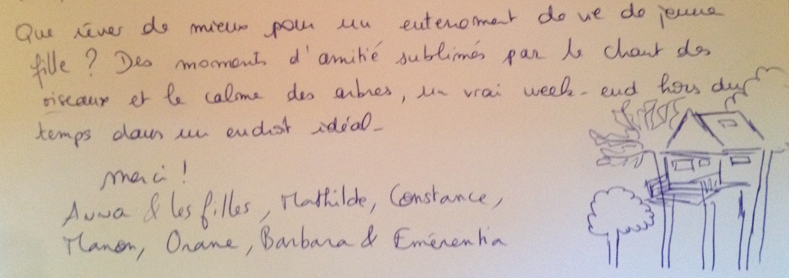 Que rêver de mieux pour un enterrement de vie de jeune
fille ? Des moments d'amitié sublimés par le chant des
oiseaux et le calme des arbres, un vrai week-end hors du
temps dans un endroit idéal-
Merci !
Anna & les filles, Mathilde, Constance,
Manon, Orane, Barbara & Emérentia